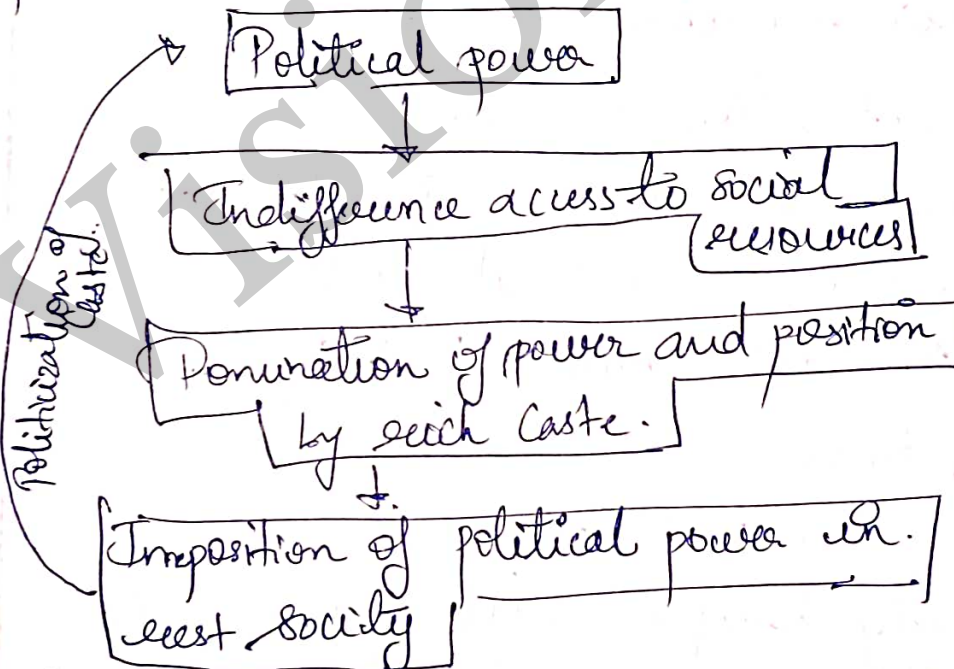 Political power
Indifference access to social
resources
Domination of power and position
by rich Caste.
Imposition of political power in.
rest society
Politicization of
Caste.
Vision